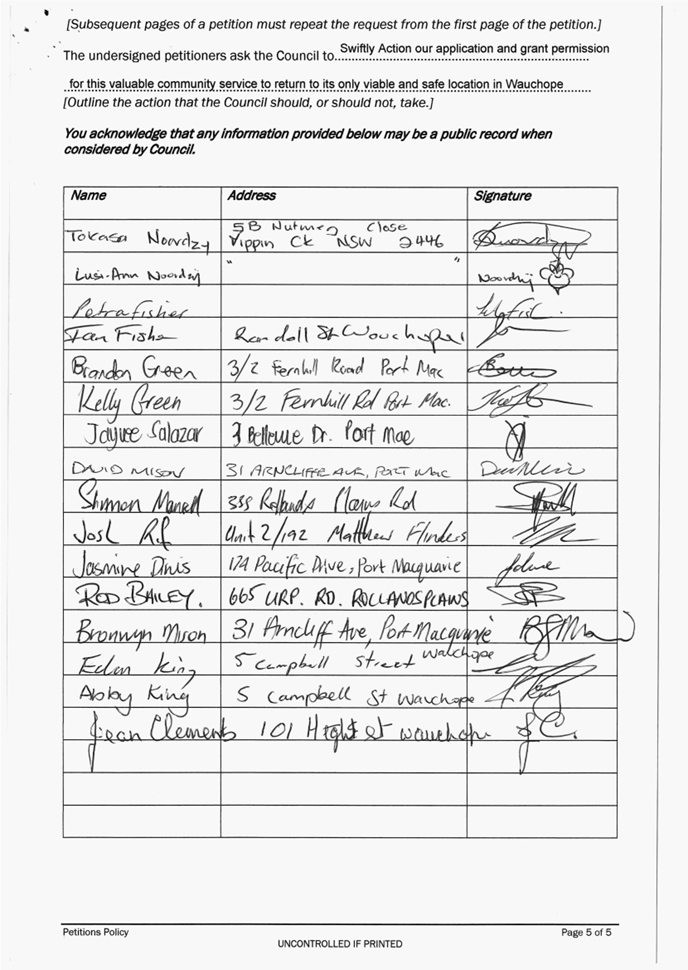 [Subsequent pages of a petition must repeat the request from the first page of the petition.]
The undersigned petitioners ask the Council to..Swiftly Action our application and grant permission
for this valuable community service to return to its only viable and safe location in Wauchope
[Outline the action that the Council should, or should not, take.]
You acknowledge that any information provided below may be a public record when
considered by Council.
Name Address Signature
Tokasa Noordzy 5B Nutmeg Close
Yippin Ck NSW 2446
Lusi-Ann Noordzij " " Noordzij
Petra Fisher
Ian Fishe Randall St
Brandon Green 3/2 Fernhill Road Port Mac
Kelly Green 3/2 Fernhill Rd Port Mac.
Salazar 3 Bellevue Dr. Port Mac
DAVID MISON 31 ARNCLIFFE AVE, PORT MAC
Rollands Plains Rd
Unit 2/192 Matthew Flinders
Jasmine Pacific Drive, Port Macquarie
ROD BAILEY. 665 URP. RD. ROLLANDSPLAWS
Bronwyn Mison 31 Arncliff Ave, Port Macquarie
King 5 Campbell Street Wauchope
Abby King 5 Campbell St Wauchope
Jean Clements 101 Hight st wauchope J C.
Petitions Policy Page 5 of 5
UNCONTROLLED IF PRINTED